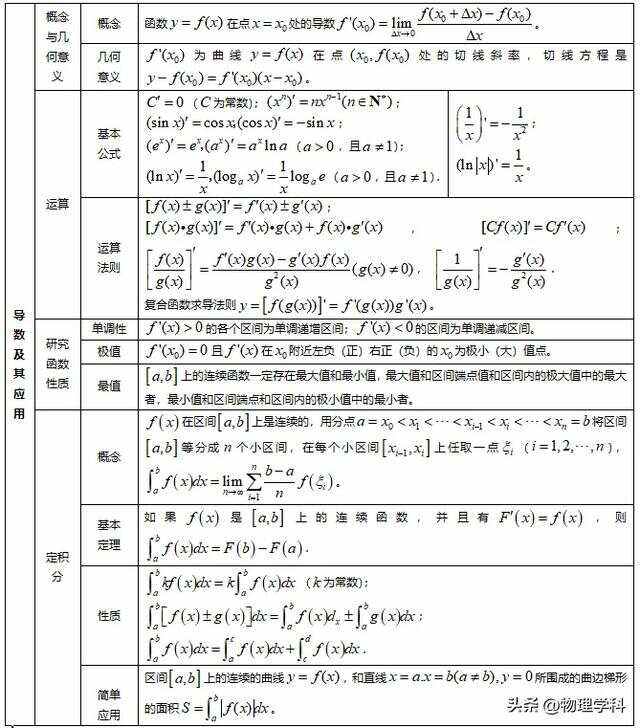 导数及其应用
概念与几何意义
概念
函数 y = f(x) 在点 x = x₀ 处的导数 f'(x₀) = lim_{Δx→0} [f(x₀ + Δx) − f(x₀)] / Δx 。
几何意义
f'(x₀) 为曲线 y = f(x) 在点 (x₀, f(x₀)) 处的切线斜率，切线方程是
y − f(x₀) = f'(x₀)(x − x₀) 。
运算
基本公式
C' = 0 (C 为常数); (xⁿ)' = nxⁿ⁻¹(n ∈ N*) ;
(sin x)' = cos x,(cos x)' = −sin x ;
(eˣ)' = eˣ,(aˣ)' = aˣ ln a (a > 0，且 a ≠ 1);
(ln x)' = 1/x ,(logₐ x)' = 1/x logₐ e (a > 0，且 a ≠ 1) .
(1/x)' = −1/x² ;
(ln|x|)' = 1/x 。
运算法则
[f(x) ± g(x)]' = f'(x) ± g'(x) ;
[f(x)•g(x)]' = f'(x)•g(x) + f(x)•g'(x) ， [Cf(x)]' = Cf'(x) ;
[f(x)/g(x)]' = [f'(x)g(x) − g'(x)f(x)] / g²(x) (g(x) ≠ 0)， [1/g(x)]' = −g'(x)/g²(x) .
复合函数求导法则 y = [f(g(x))]' = f'(g(x))g'(x) 。
研究函数性质
单调性
f'(x) > 0 的各个区间为单调递增区间； f'(x) < 0 的区间为单调递减区间。
极值
f'(x₀) = 0 且 f'(x) 在 x₀ 附近左负（正）右正（负）的 x₀ 为极小（大）值点。
最值
[a,b] 上的连续函数一定存在最大值和最小值，最大值和区间端点值和区间内的极大值中的最大
者，最小值和区间端点和区间内的极小值中的最小者。
定积分
概念
f(x) 在区间 [a,b] 上是连续的，用分点 a = x₀ < x₁ < ⋯ < xᵢ₋₁ < xᵢ < ⋯ < xₙ = b 将区间
[a,b] 等分成 n 个小区间，在每个小区间 [xᵢ₋₁, xᵢ] 上任取一点 ξᵢ （i = 1,2,⋯,n），
∫ₐᵇ f(x)dx = lim_{n→∞} Σ_{i=1}^{n} (b−a)/n f(ξᵢ) 。
基本定理
如果 f(x) 是 [a,b] 上的连续函数，并且有 F'(x) = f(x)，则
∫ₐᵇ f(x)dx = F(b) − F(a) .
性质
∫ₐᵇ kf(x)dx = k∫ₐᵇ f(x)dx (k 为常数);
∫ₐᵇ [f(x) ± g(x)]dx = ∫ₐᵇ f(x)dₓ ± ∫ₐᵇ g(x)dx ;
∫ₐᵇ f(x)dx = ∫ₐᶜ f(x)dx + ∫_c^d f(x)dx .
简单应用
区间 [a,b] 上的连续的曲线 y = f(x)，和直线 x = a.x = b(a ≠ b), y = 0 所围成的曲边梯形
的面积 S = ∫ₐᵇ |f(x)|dx 。
头条 @物理学科